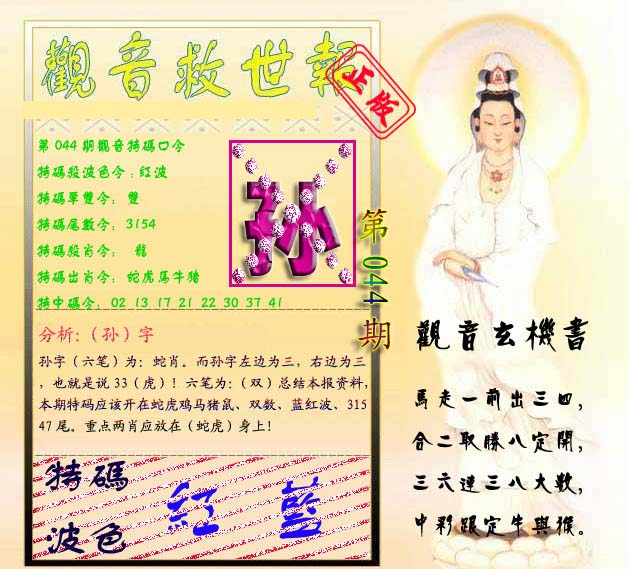 觀音救世報
正版
第044期觀音特碼口令
特碼殺波色令：紅波
特碼單雙令： 雙
特碼尾數令： 3154
特碼殺肖令： 龍
特碼出肖令： 蛇虎馬牛猪
特中碼令： 02 13 17 21 22 30 37 41
孙
第044期
分析:（孙）字
孙字（六笔）为：蛇肖。而孙字左边为三，右边为三
，也就是说33（虎）！六笔为：(双）总结本报资料,
本期特码应该开在蛇虎鸡马猪鼠、双数、蓝红波、315
47尾。重点两肖应放在（蛇虎）身上!
特碼
波色
紅 藍
觀音玄機書
馬走一前出三四，
合二取勝八定開，
三六連三八大數，
中彩跟定牛與猴。